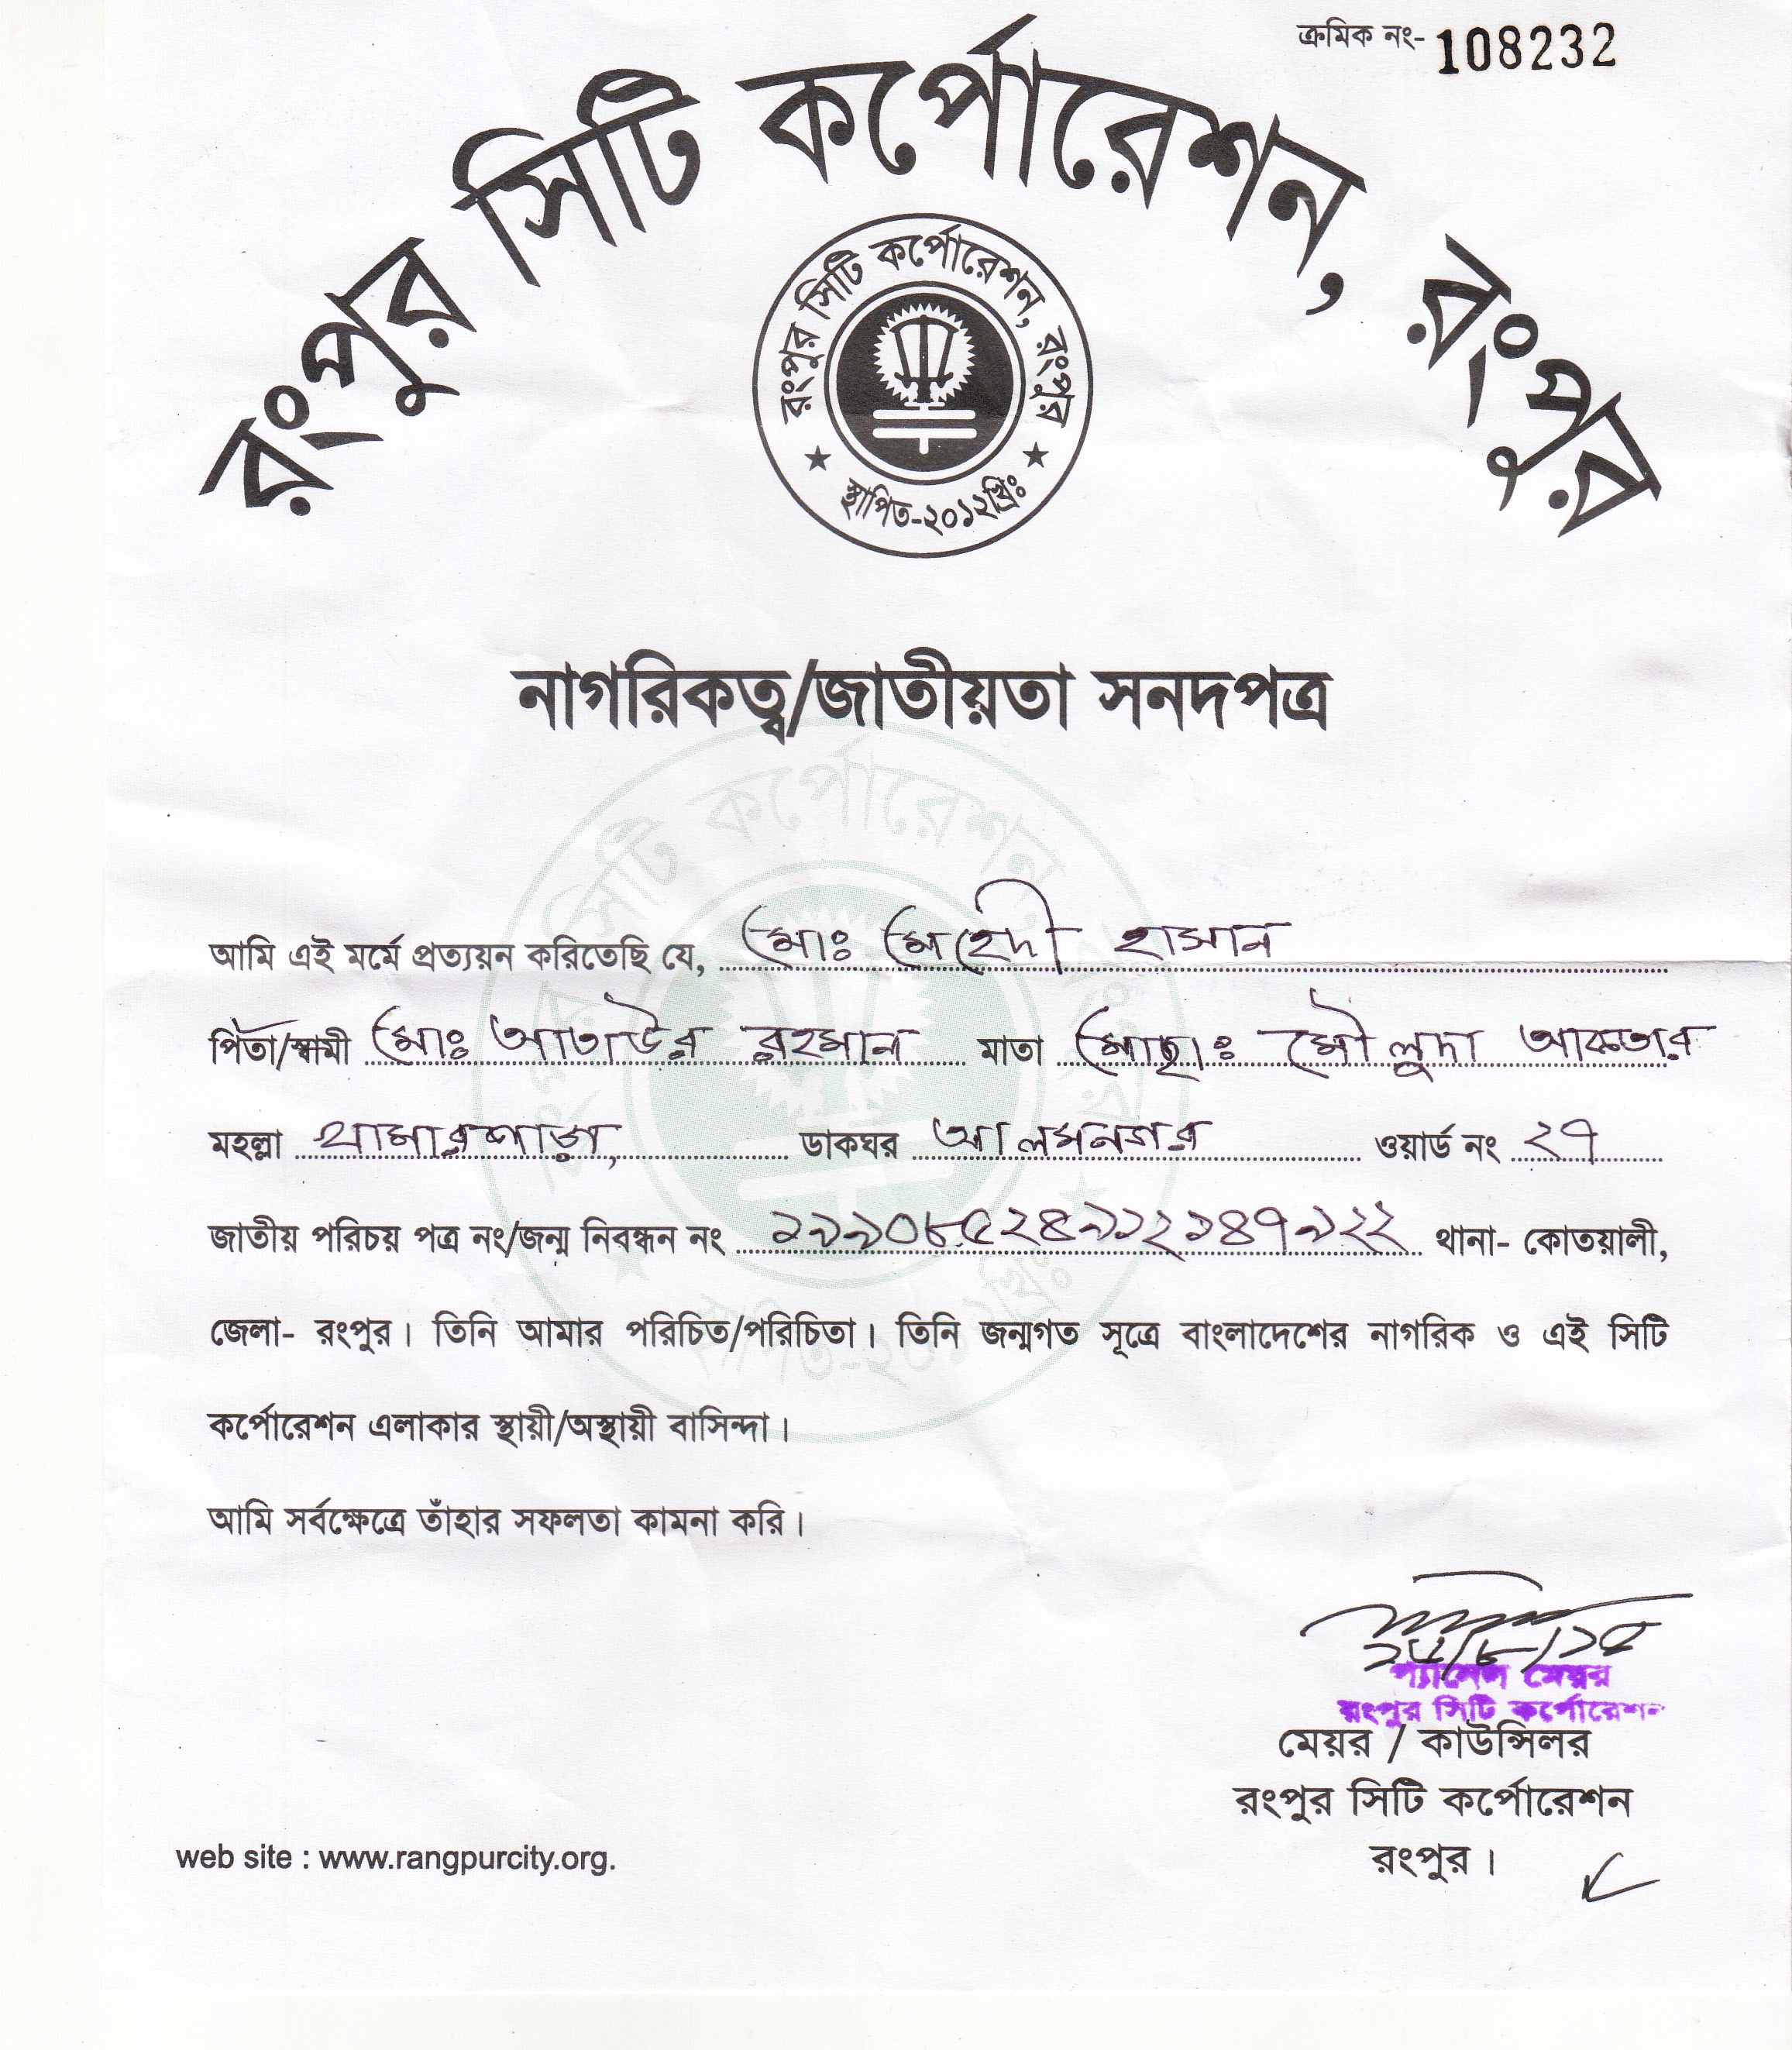 ক্রমিক নং- 108232
রংপুর সিটি কর্পোরেশন, রংপুর
রংপুর সিটি কর্পোরেশন, রংপুর
স্থাপিত-২০১২খ্রিঃ
নাগরিকত্ব/জাতীয়তা সনদপত্র
আমি এই মর্মে প্রত্যয়ন করিতেছি যে, মোঃ মেহেদী হাসান
পিতা/স্বামী মোঃ আতাউর রহমান মাতা মোছাঃ মৌলুদা আকতার
মহল্লা খামারপাড়া, ডাকঘর আলমনগর ওয়ার্ড নং ২৭
জাতীয় পরিচয় পত্র নং/জন্ম নিবন্ধন নং থানা- কোতয়ালী,
জেলা- রংপুর। তিনি আমার পরিচিত/পরিচিতা। তিনি জন্মগত সূত্রে বাংলাদেশের নাগরিক ও এই সিটি
কর্পোরেশন এলাকার স্থায়ী/অস্থায়ী বাসিন্দা।
আমি সর্বক্ষেত্রে তাঁহার সফলতা কামনা করি।
প্যানেল মেয়র
রংপুর সিটি কর্পোরেশন
মেয়র / কাউন্সিলর
রংপুর সিটি কর্পোরেশন
রংপুর।
web site : www.rangpurcity.org.